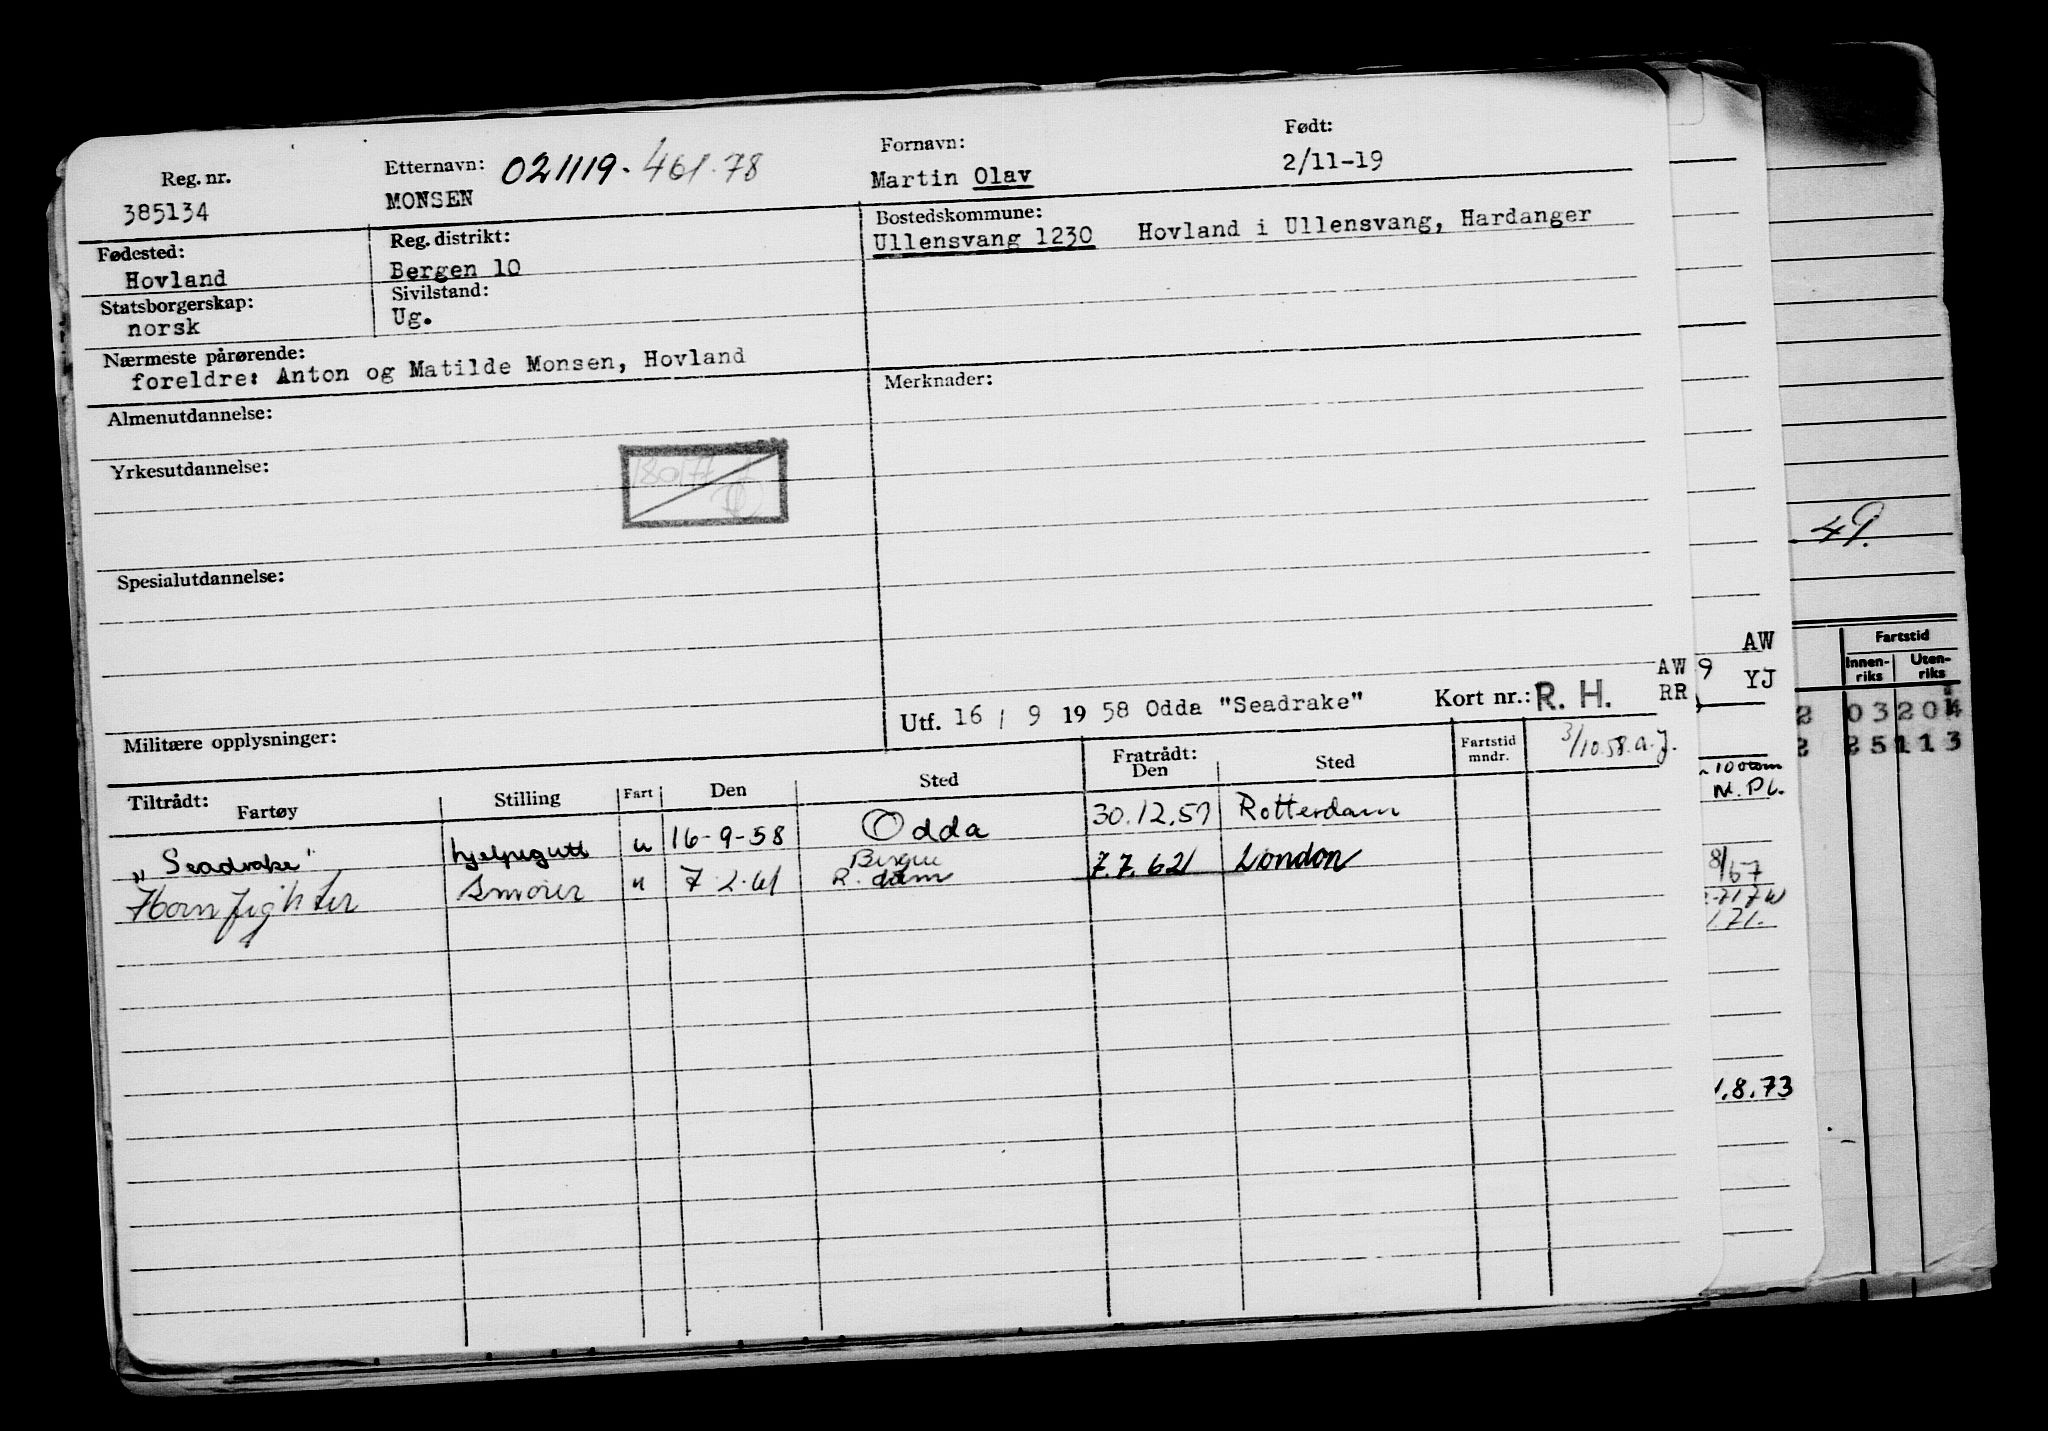 Reg. nr. Etternavn: 021119-461.78 Fornavn: Født:
385134 MONSEN Martin Olav 2/11-19
Fødested: Reg. distrikt: Bostedskommune:
Hovland Bergen 10 Ullensvang 1230 Hovland i Ullensvang, Hardanger
Statsborgerskap: Sivilstand:
norsk Ug.
Nærmeste pårørende:
foreldre: Anton og Matilde Monsen, Hovland
Almenutdannelse: Merknader:
Yrkesutdannelse:
Spesialutdannelse:
Militære opplysninger:
Utf. 16 / 9 19 58 Odda "Seadrake" Kort nr.: R. H. AW RR
3/10.58. a. J.
Tiltrådt: Fartøy Stilling Fart Den Sted Fratrådt: Den Sted Fartstid mndr.
„Seadrake" hjelpegutt u 16-9-58 Odda 30.12.59 Rotterdam
Hornfighter Smører u 7.2.61 R.dam 7.7.62 London
49.
AW
9 YJ
Fartstid
Innen-riks Uten-riks
2 03 204
2 25 113
100tom
M. Pl.
8/67
1.71.
1.8.73